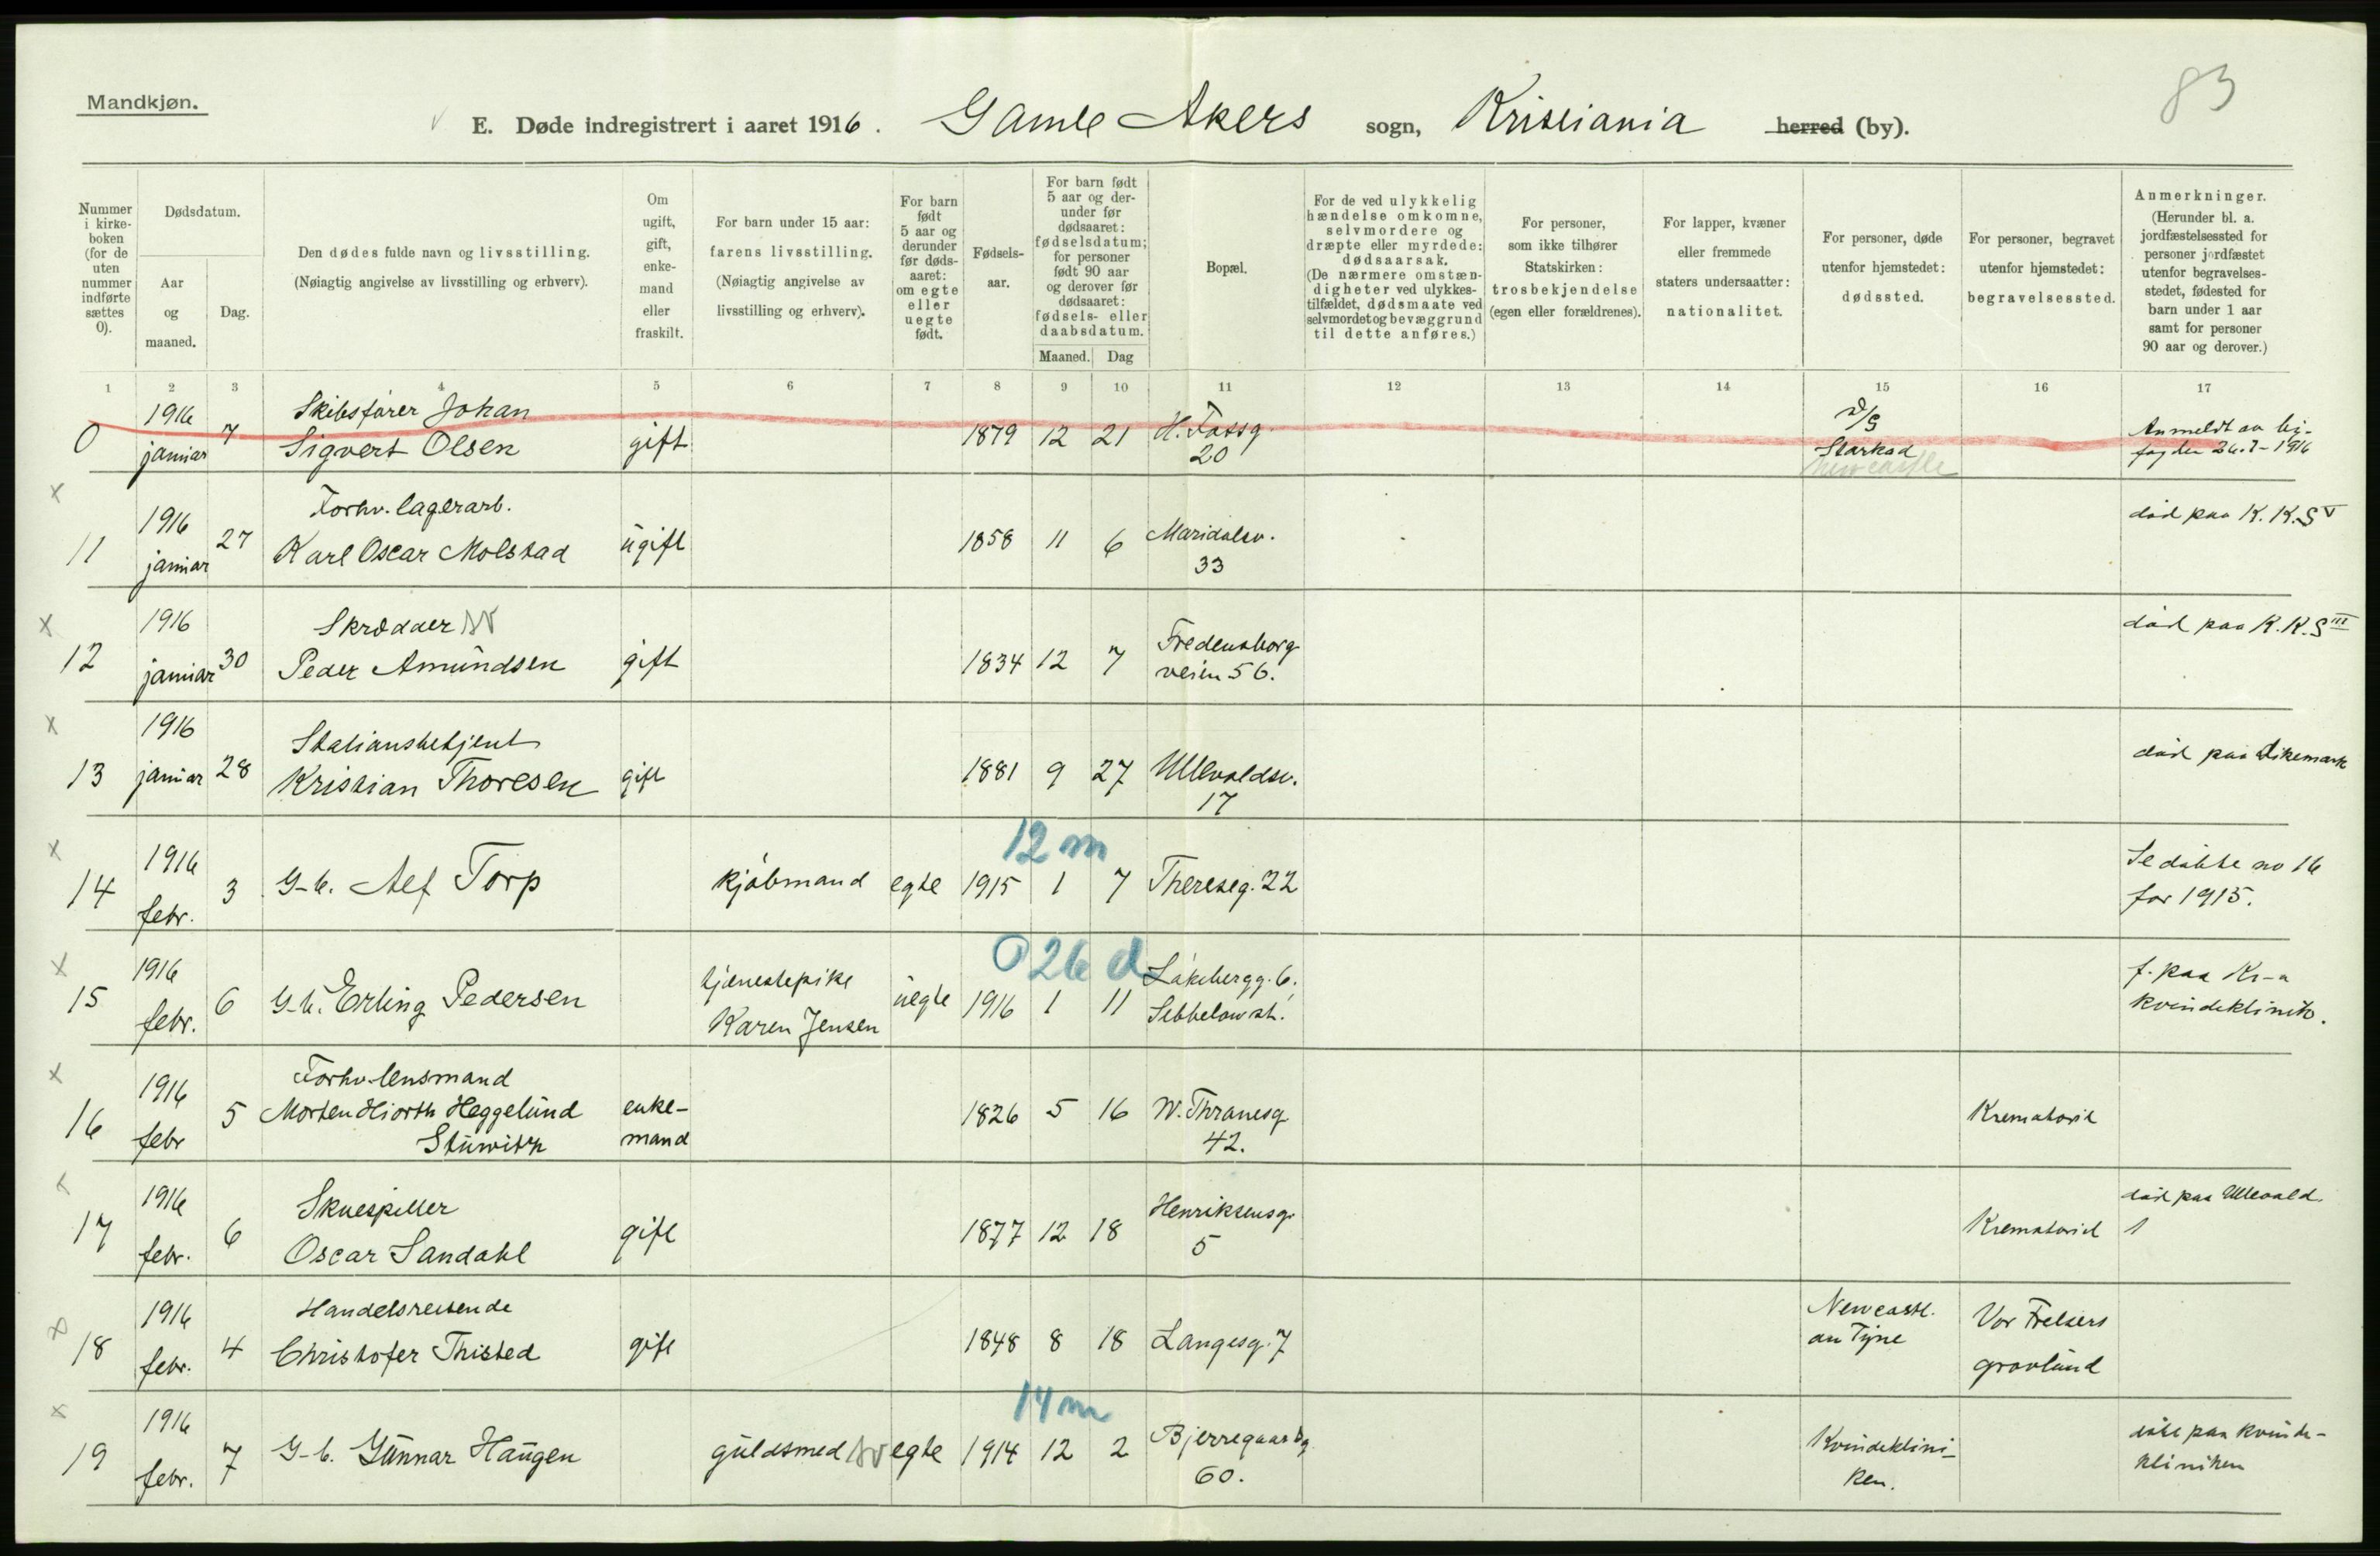 Mandkjøn.
83
E. Døde indregistrert i aaret 1916. Gamle Akers sogn, Kristiania herred (by).
Nummer i kirkeboken (for de uten nummer indførte sættes 0).
Dødsdatum.
Aar og maaned.
Dag.
Den dødes fulde navn og livsstilling.
(Nøiagtig angivelse av livsstilling og erhverv).
Om ugift, gift, enkemand eller fraskilt.
For barn under 15 aar: farens livsstilling.
(Nøiagtig angivelse av livsstilling og erhverv).
For barn født 5 aar og derunder før dødsaaret: om egte eller uegte født.
Fødselsaar.
For barn født 5 aar og derunder før dødsaaret: fødselsdatum; for personer født 90 aar og derover før dødsaaret: fødsels- eller daabsdatum.
Maaned. Dag
Bopæl.
For de ved ulykkelig hændelse omkomne, selvmordere og dræpte eller myrdede: dødsaarsak.
(De nærmere omstændigheter ved ulykkestilfældet, dødsmaate ved selvmordet og bevæggrund til dette anføres.)
For personer, som ikke tilhører Statskirken: trosbekjendelse (egen eller forældrenes).
For lapper, kvæner eller fremmede staters undersaatter: nationalitet.
For personer, døde utenfor hjemstedet: dødssted.
For personer, begravet utenfor hjemstedet: begravelsessted.
Anmerkninger.
(Herunder bl. a. jordfæstelsessted for personer jordfæstet utenfor begravelsesstedet, fødested for barn under 1 aar samt for personer 90 aar og derover.)
1 2 3 4 5 6 7 8 9 10 11 12 13 14 15 16 17
0 1916 januar 7 Skibsfører Johan Sigvert Olsen gift 1879 12 21 H. Fossg. 20 D/S Starkad Newcastle Anmeldt av by- fogden 26.1-1916
11 1916 januar 27 Forhv. lagerarb. Karl Oscar Molstad ugift 1858 11 6 Maridalsv. 33 død paa K. K. S V
12 1916 januar 30 Skrædder Peder Amundsen gift 1834 12 7 Fredensborg veien 56. død paa K. K. S III
13 1916 januar 28 Stationsbetjent Kristian Thoresen gift 1881 9 27 Ullevoldsv. 17 død paa Dikemark
12 m
14 1916 febr. 3 G-b. Alf Torp kjøbmand egte 1915 1 7 Thereseg. 22 Se døbte no 16 for 1915.
0 26 d
15 1916 febr. 6 G-b. Erling Pedersen tjenestepike Karen Jensen uegte 1916 1 11 Lakkebergg. 6, Sebbelowst. f. paa Kr-a kvindeklinik.
16 1916 febr 5 Forhv. lensmand Morten Hiorth Heggelund Stuwitz enke- mand 1826 5 16 W. Thranesg. 42. Krematoriet
17 1916 febr. 6 Skuespiller Oscar Sandahl gift 1877 12 18 Henriksensg. 5 Krematoriet død paa Ullevold 1
18 1916 febr. 4 Handelsreisende Christofer Thisted gift 1848 8 18 Langesg. 7 Newcastl. on Tyne Vor Frelsers gravlund
14 m
19 1916 febr. 7 G-b. Gunnar Haugen guldsmed egte 1914 12 2 Bjerregaardsg. 60. Kvindeklini- ken. paa kvinde- kliniken